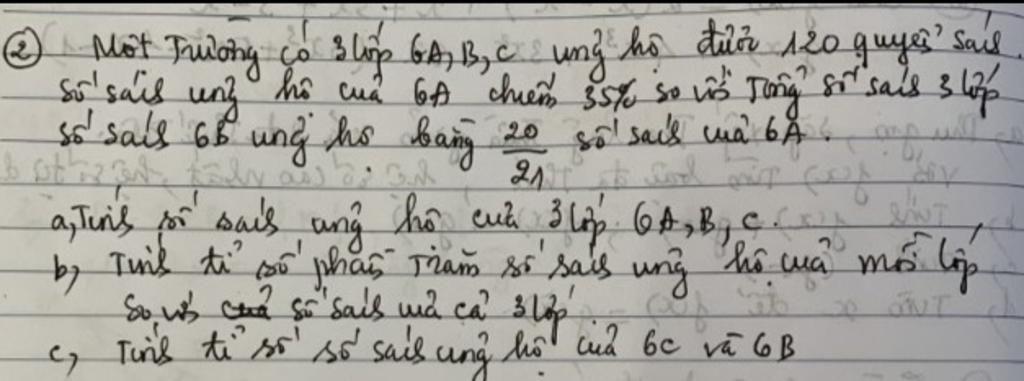 ② Một Trường có 3 lớp 6A, B, C ủng hộ được 120 quyển sách.
Số sách ủng hộ của 6A chiếm 35% so với Tổng số sách 3 lớp
số sách 6B ủng hộ bằng 20/21 số sách của 6A.
a, Tính số sách ủng hộ của 3 lớp 6A, B, C.
b, Tính tỉ số phần Trăm số sách ủng hộ của mỗi lớp
so với số sách của cả 3 lớp
c, Tính tỉ số số sách ủng hộ của 6C và 6B